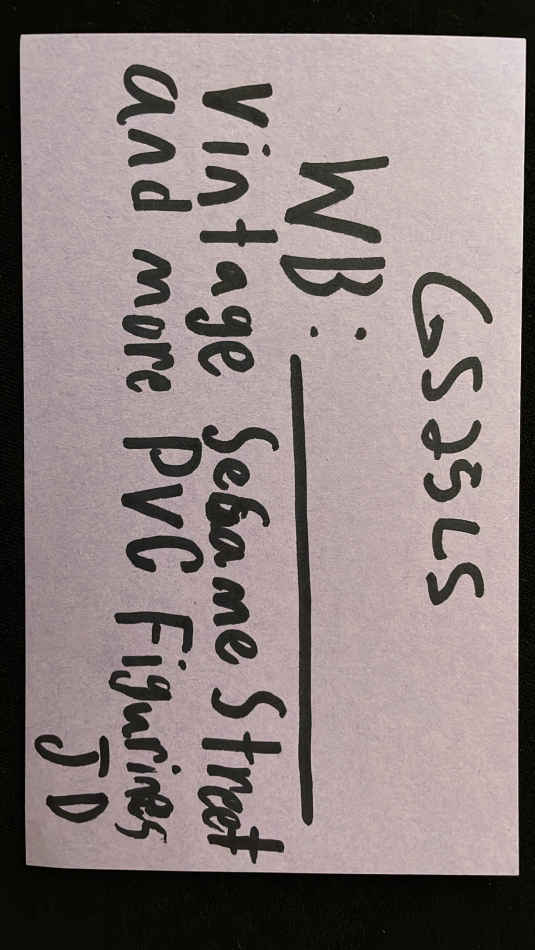 WB: ______
Vintage Sesame Street
and more PVC Figurines
JD